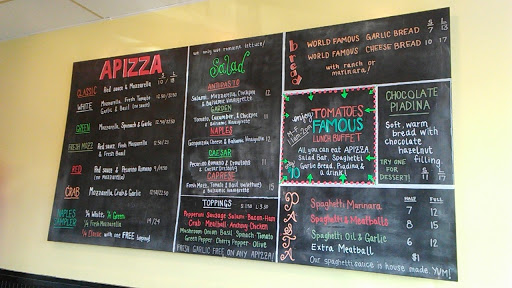 APIZZA
S L
10 18
CLASSIC Red sauce & Mozzarella
WHITE Mozzarella, Fresh Tomato
Garlic & Basil (no sauce)
GREEN Mozzarella, Spinach & Garlic
FRESH MOZZ Red Sauce, Fresh Mozzarella
& Fresh Basil
RED Red Sauce & Pecorino Romano
(no mozzarella)
CRAB Mozzarella, Crab & Garlic
NAPLES SAMPLER
1/4 White 1/4 Green
1/4 Fresh Mozzarella
1/4 Classic with one FREE topping!
we only use romaine lettuce!
Salad
ANTIPASTO
Salami, Mozzarella, Chickpea
& Balsamic Vinaigrette
GARDEN
Tomato, Cucumber, & Chickpea
& Balsamic Vinaigrette
NAPLES
Gorgonzola Cheese & Balsamic Vinaigrette
CAESAR
Pecorino Romano & Croutons
CAPRESE
Fresh Mozz, Tomato & Basil
& Balsamic Vinaigrette
TOPPINGS
Pepperoni Sausage Salami Bacon Ham
Crab Meatball Anchovy Chicken
Mushroom Onion Basil Spinach Tomato
Green Pepper Cherry Pepper Olive
FRESH GARLIC FREE ON ANY APIZZA!
bread
S L
WORLD FAMOUS GARLIC BREAD 7 13
WORLD FAMOUS CHEESE BREAD 10 17
with ranch or
marinara!
enjoy
TOMATOES
FAMOUS
LUNCH BUFFET
All you can eat APIZZA
Salad Bar, Spaghetti
Garlic Bread, Piadina &
a drink!
CHOCOLATE
PIADINA
Soft, warm
bread with
chocolate
hazelnut
filling
TRY ONE
FOR
DESSERT!
PASTA
HALF FULL
Spaghetti Marinara 7 12
Spaghetti & Meatballs 8 15
Spaghetti Oil & Garlic 6 12
Extra Meatball
Our spaghetti sauce is house made. YUM!